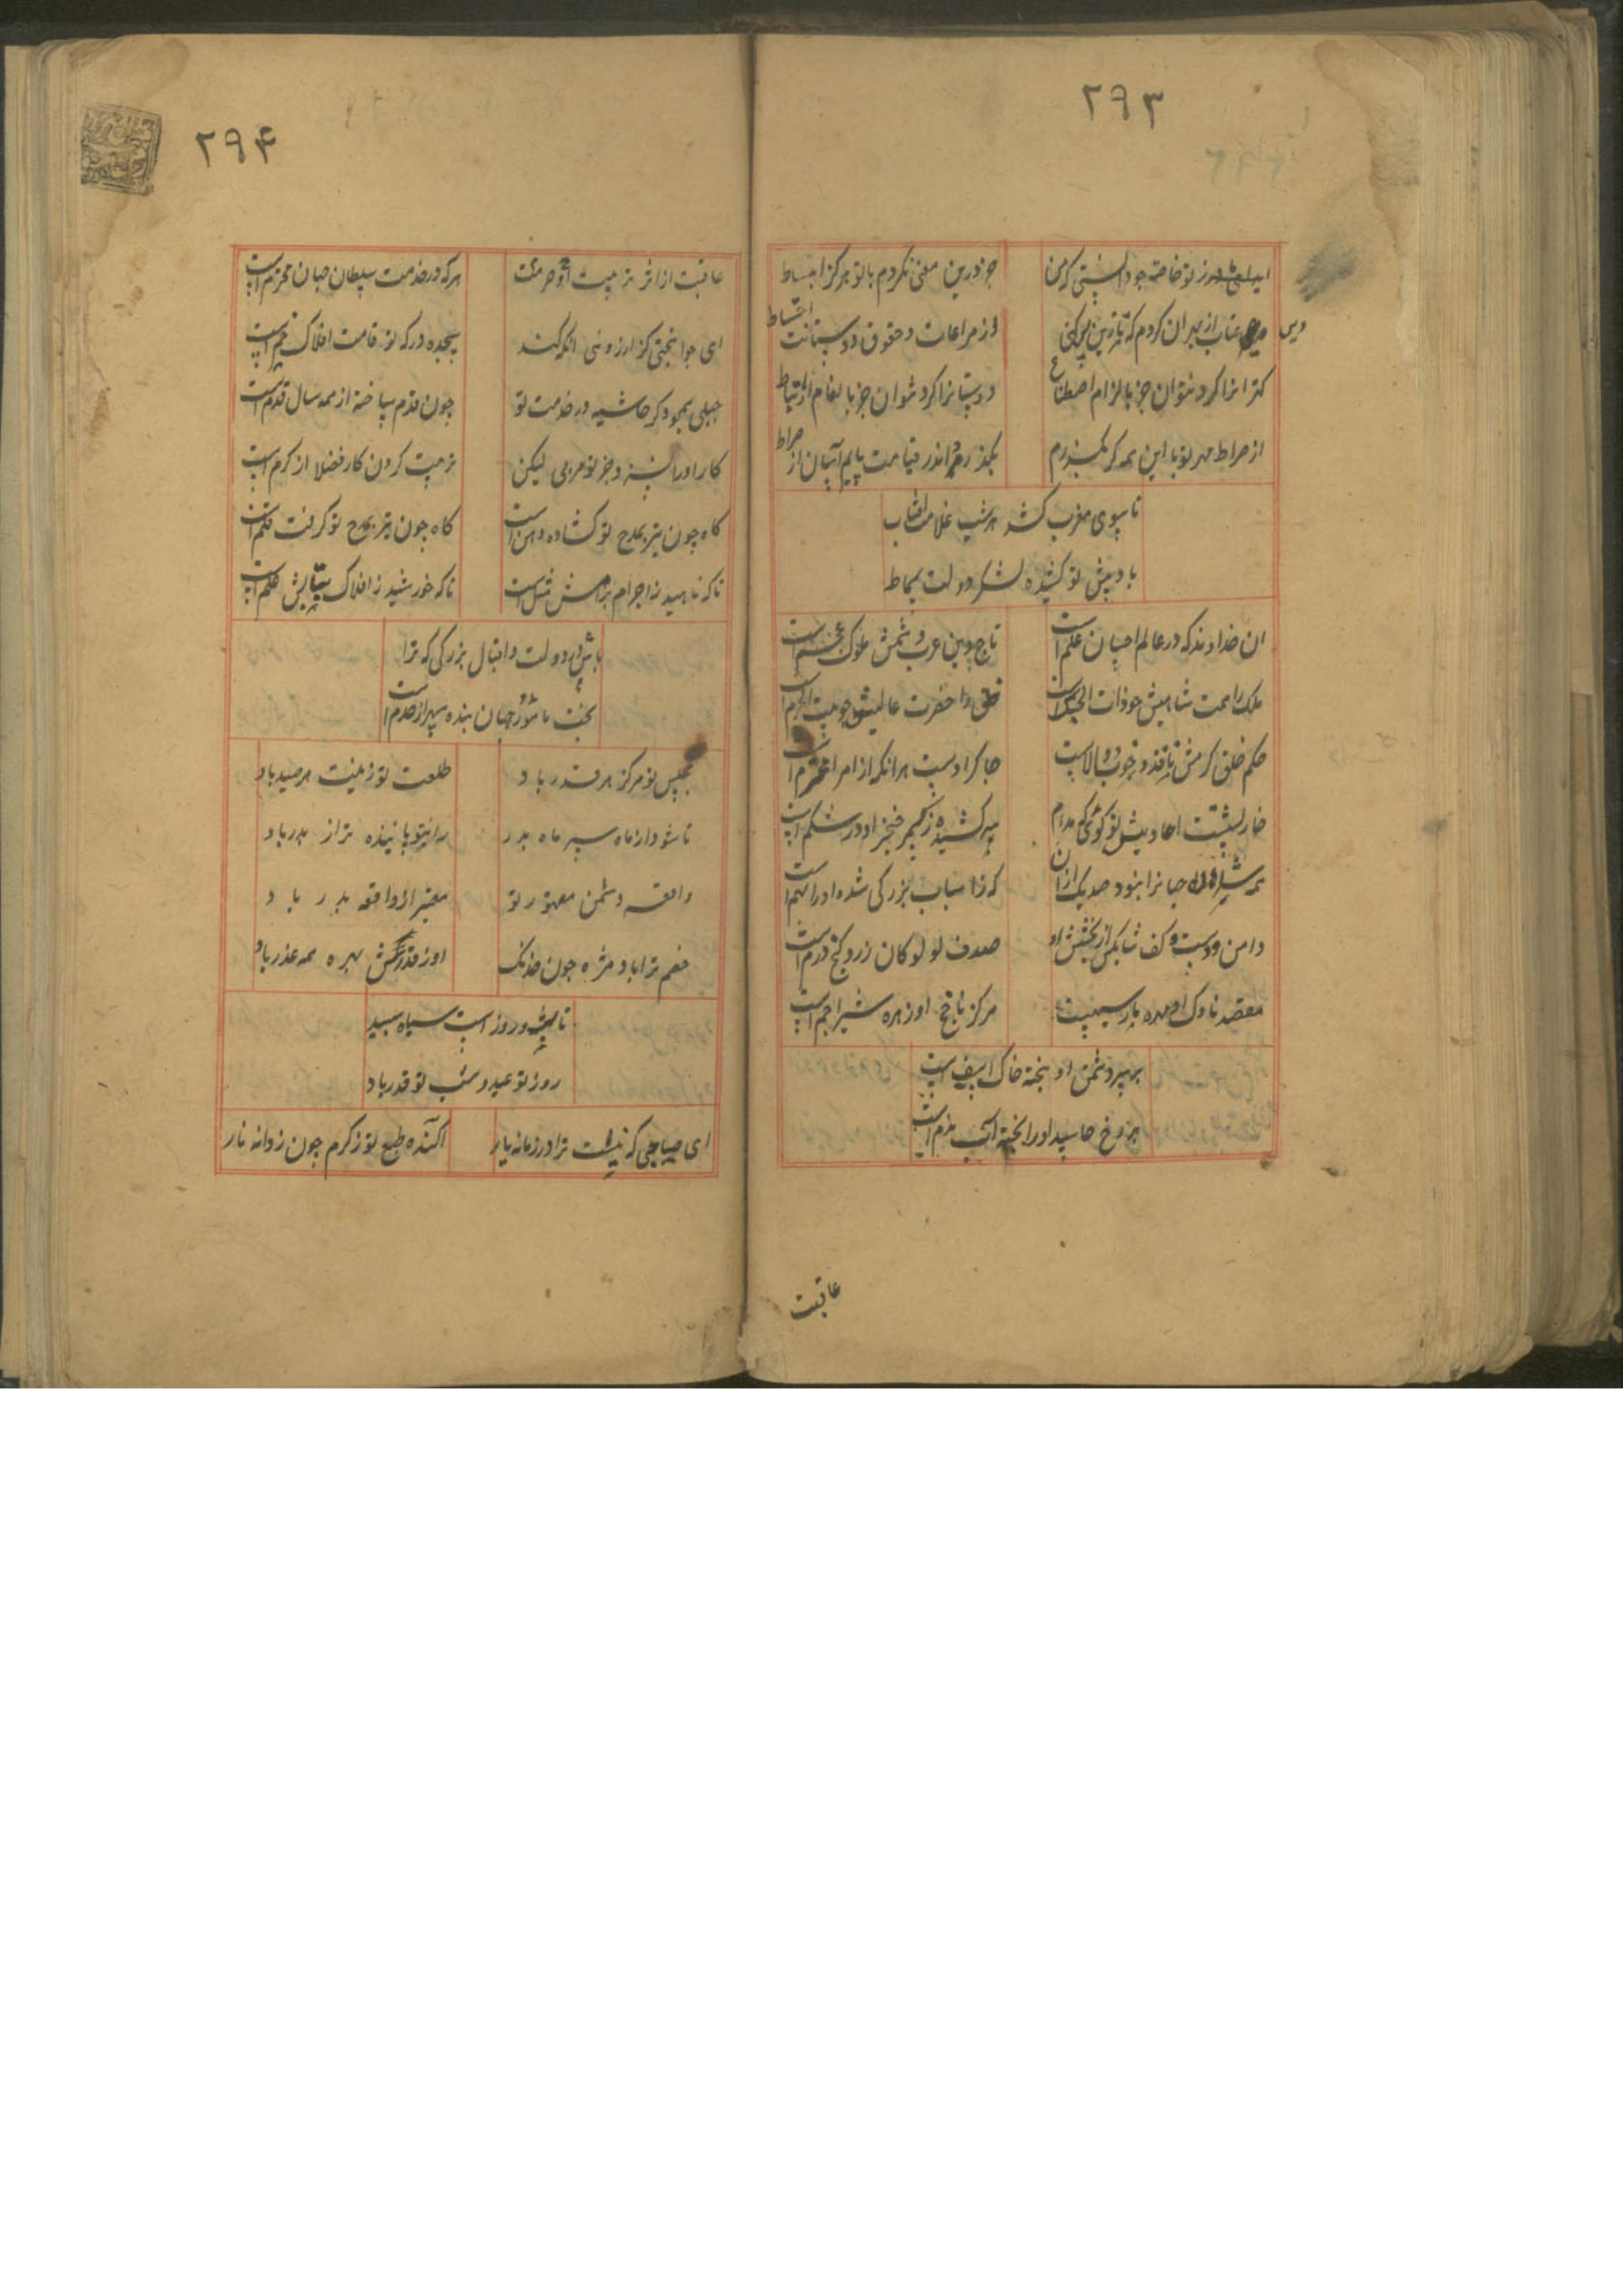 ۲۹۳
خاصه چو دانستی که من
جز درین معنی نکردم با تو هرگز انبساط
وین عتاب از بهر آن کردم که تا زین پس کنی
از مراعات و حقوق دوستانت احتیاط
کهترانرا کرد نتوان جز بالزام اصطناع
دوستانرا کرد نتوان جز بانعام ارتباط
از صراط مهر تو با این همه گر نگذرم
بگذرم اندر قیامت پایم آسان از صراط
تا بسوی مغرب کشد هر شب علامت آفتاب
باد پیش تو کشیده لشکر دولت سماط
آن خداوند که در عالم احسان علم است
تاج دین عرب و شمس ملوک عجم است
ملک را همت شاهیش چو ذات الحبک است
خلق را حضرت عالیش چو بیت الحرم است
حکم خلق کرمش نافذ و خوب و والاست
چاکر اوست هر انکه از امرا محترم است
خارپشت است
خنجر او در شکم است
جهانرا نبود صد یک از ان
که ز اسباب بزرگی شده او را بهم است
دامن دوست و کف شاکر از بخشش او
صدف لولو و کان زر و گنج درم است
مقصد ناوک او مهره مار سیهست
مرکز ناچخ او زهره شیر اجم است
بر سر دشمن او بیخته خاک اسف است
بر رخ حاسد او ریخته آب ندم است
عاقبت
۲۹۴
عاقبت از اثر تربیت و حرمت
هرکه در خدمت سلطان جهان محترم است
ای جوانبختی کز آرزوی انکه کند
سجده درگه تو قامت افلاک خم است
جبلی همچو دگر حاشیه در خدمت تو
چون قدم ساخته از همه سال قدم است
کار او راست و جز تو مربی لیکن
تربیت کردن کار فضلا از کرم است
گاه چون تیر بمدح تو گشاده دهن است
گاه چون تیر بمدح تو گرفته قلم است
تا که ناهید ز اجرام برامش مثل است
تا که خورشید ز افلاک بتابش علم است
باش در دولت و اقبال بزرگی که ترا
بخت مامور و جهان بنده و سپهر از خدم است
مجلس تو مرکز هر قدر باد
طلعت تو زینت هر صدر باد
تا شود از ماه سپر ماه بدر
رایت تو پاینده تر از بدر باد
واقعه دشمن مقهور تو
معتبر از واقعه بدر باد
خصم ترا باد مژه چون خدنگ
بهره همه غدر باد
تا شب و روز است سیاه و سپید
روز تو عید و شب تو قدر باد
ای صاحبی که نیست ترا در زمانه یار
آکنده طبع تو ز کرم چون ز دانه نار